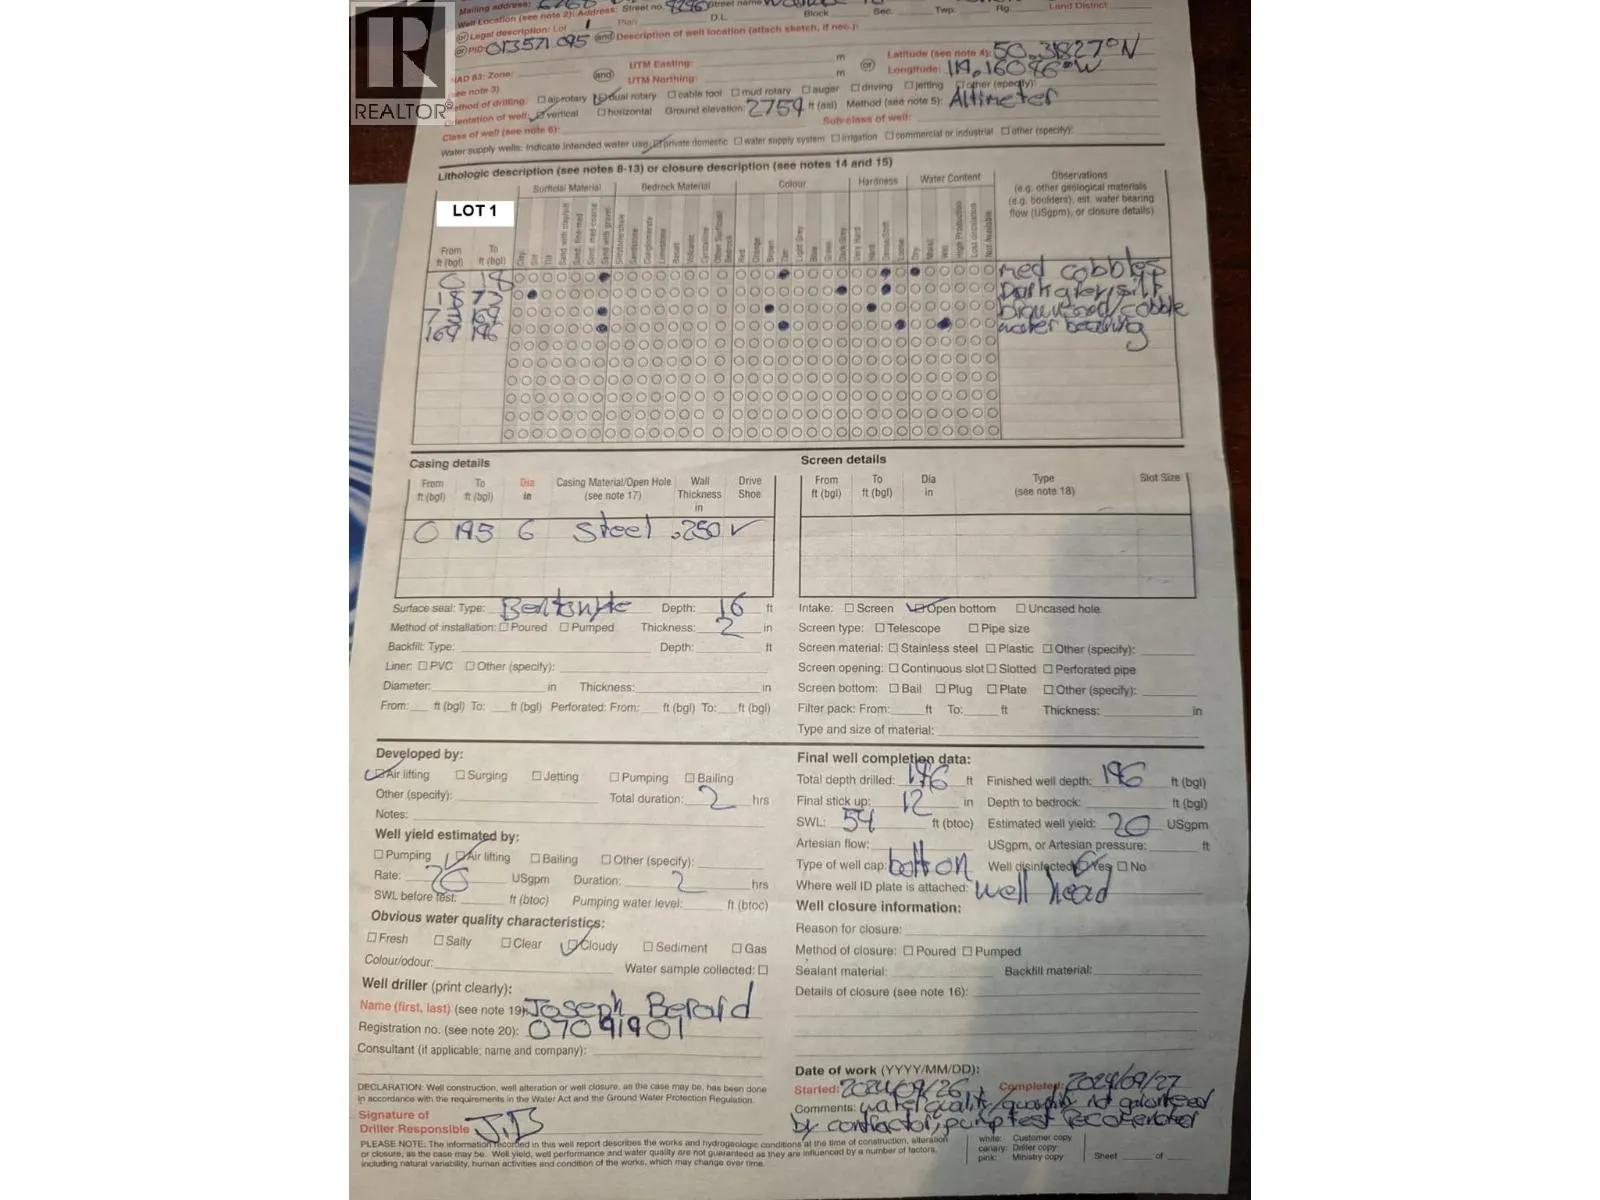 REALTOR®
Mailing address:
Well Location (see note 2): Address: Street no. Street name
or Legal description: Lot 1 Plan D.L. Block Sec. Twp. Rg Land District
or PID: 013571 095 and Description of well location (attach sketch, if nec.):
NAD 83: Zone: and UTM Easting: m or Latitude (see note 4): 50.31827°N
(see note 3) UTM Northing: m Longitude: 119.16096°W
Method of drilling: ☐ air rotary ☑ dual rotary ☐ cable tool ☐ mud rotary ☐ auger ☐ driving ☐ jetting ☐ other (specify):
Orientation of well: ☑ vertical ☐ horizontal Ground elevation: 2759 ft (asl) Method (see note 5): Altimeter
Class of well (see note 6): Sub-class of well:
Water supply wells: indicate intended water use: ☑ private domestic ☐ water supply system ☐ irrigation ☐ commercial or industrial ☐ other (specify):
Lithologic description (see notes 8-13) or closure description (see notes 14 and 15)
LOT 1
From ft (bgl) To ft (bgl) Surficial Material Bedrock Material Colour Hardness Water Content Observations
(e.g. other geological materials
(e.g. boulders), est. water bearing
flow (USgpm), or closure details)
0 18 med cobbles
18 73 Dark grey silt
73 169
169 196 water bearing
Casing details
From ft (bgl) To ft (bgl) Dia in Casing Material/Open Hole (see note 17) Wall Thickness in Drive Shoe
0 195 6 Steel .250 ✓
Screen details
From ft (bgl) To ft (bgl) Dia in Type (see note 18) Slot Size
Surface seal: Type: Bentonite Depth: 16 ft
Method of installation: ☐ Poured ☐ Pumped Thickness: 2 in
Backfill: Type: Depth: ft
Liner: ☐ PVC ☐ Other (specify):
Diameter: in Thickness: in
From: ft (bgl) To: ft (bgl) Perforated: From: ft (bgl) To: ft (bgl)
Intake: ☐ Screen ☑ Open bottom ☐ Uncased hole
Screen type: ☐ Telescope ☐ Pipe size
Screen material: ☐ Stainless steel ☐ Plastic ☐ Other (specify):
Screen opening: ☐ Continuous slot ☐ Slotted ☐ Perforated pipe
Screen bottom: ☐ Bail ☐ Plug ☐ Plate ☐ Other (specify):
Filter pack: From: ft To: ft Thickness: in
Type and size of material:
Developed by:
☑ Air lifting ☐ Surging ☐ Jetting ☐ Pumping ☐ Bailing
Other (specify): Total duration: 2 hrs
Notes:
Well yield estimated by:
☐ Pumping ☑ Air lifting ☐ Bailing ☐ Other (specify):
Rate: 20 USgpm Duration: 2 hrs
SWL before test: ft (btoc) Pumping water level: ft (btoc)
Obvious water quality characteristics:
☐ Fresh ☐ Salty ☐ Clear ☑ Cloudy ☐ Sediment ☐ Gas
Colour/odour: Water sample collected: ☐
Well driller (print clearly):
Name (first, last) (see note 19): Joseph Berard
Registration no. (see note 20): 07091901
Consultant (if applicable; name and company):
DECLARATION: Well construction, well alteration or well closure, as the case may be, has been done
in accordance with the requirements in the Water Act and the Ground Water Protection Regulation.
Signature of
Driller Responsible J.B
Final well completion data:
Total depth drilled: 196 ft Finished well depth: 196 ft (bgl)
Final stick up: 12 in Depth to bedrock: ft (bgl)
SWL: 54 ft (btoc) Estimated well yield: 20 USgpm
Artesian flow: USgpm, or Artesian pressure: ft
Type of well cap: bolt on Well disinfected: ☑ Yes ☐ No
Where well ID plate is attached: well head
Well closure information:
Reason for closure:
Method of closure: ☐ Poured ☐ Pumped
Sealant material: Backfill material:
Details of closure (see note 16):
Date of work (YYYY/MM/DD):
Started: 2024/09/26 Completed: 2024/09/27
Comments: water quality/quantity not guaranteed
by contractor, pump test recommended
PLEASE NOTE: The information recorded in this well report describes the works and hydrogeologic conditions at the time of construction, alteration
or closure, as the case may be. Well yield, well performance and water quality are not guaranteed as they are influenced by a number of factors,
including natural variability, human activities and condition of the works, which may change over time.
white: Customer copy
canary: Driller copy
pink: Ministry copy
Sheet of